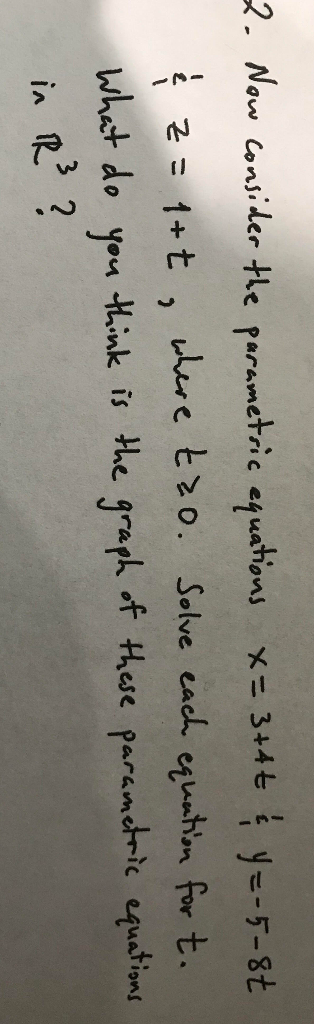 2. Now consider the parametric equations x = 3+4t & y = -5-8t
& z = 1+t, where t ≥ 0. Solve each equation for t.
What do you think is the graph of these parametric equations
in ℝ³?